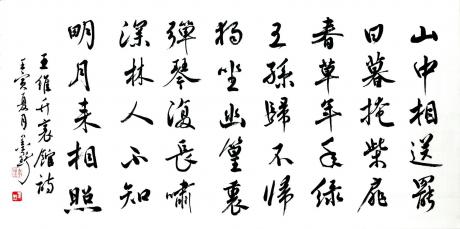 山中相送罷
日暮掩柴扉
春草年年緑
王孫歸不歸
獨坐幽篁裏
彈琴復長嘯
深林人不知
明月来相照
王維竹裏館詩
壬寅夏月